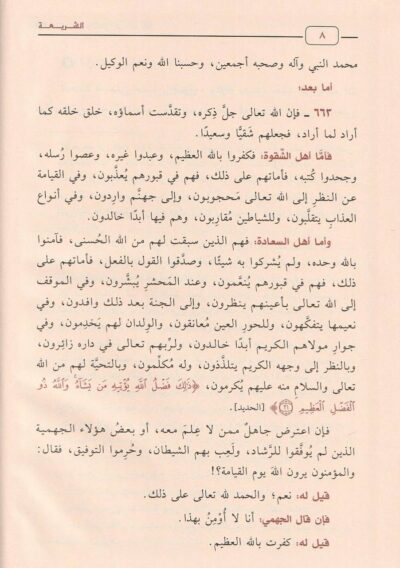 ٨
الشريعة
محمد النبي وآله وصحبه أجمعين، وحسبنا الله ونعم الوكيل.
أما بعد:
٦٦٣ ـ فإن الله تعالى جلَّ ذِكره، وتقدَّست أسماؤه، خلق خلقه كما
أراد لما أراد، فجعلهم شقيًّا وسعيدًا.
فأمَّا أهل الشِّقوة: فكفروا بالله العظيم، وعبدوا غيره، وعصوا رُسله،
وجحدوا كُتبه، فأماتهم على ذلك، فهم في قبورهم يُعذَّبون، وفي القيامة
عن النظرِ إلى الله تعالى مَحجوبون، وإلى جهنَّم واردون، وفي أنواع
العذابِ يتقلَّبون، وللشياطين مُقارِبون، وهم فيها أبدًا خالدون.
وأما أهل السعادة: فهم الذين سبقت لهم من الله الحُسنى، فآمنوا
بالله وحده، ولم يُشركوا به شيئًا، وصدَّقوا القول بالفعل، فأماتهم على
ذلك، فهم في قبورهم يُنعَّمون، وعند المَحشرِ يُبشَّرون، وفي الموقف
إلى الله تعالى بأعينهم ينظرون، وإلى الجنة بعد ذلك وافدون، وفي
نعيمها يتفكَّهون، وللحورِ العين مُعانقون، والوِلدان لهم يَخدِمون، وفي
جوارِ مولاهم الكريم أبدًا خالدون، ولربِّهم تعالى في داره زائِرون،
وبالنظر إلى وجهه الكريم يتلذَّذون، وله مُكلِّمون، وبالتحيَّة لهم من الله
تعالى والسلامِ منه عليهم يُكرمون، ﴿ذَٰلِكَ فَضْلُ ٱللَّهِ يُؤْتِيهِ مَن يَشَآءُ وَٱللَّهُ ذُو
ٱلْفَضْلِ ٱلْعَظِيمِ ۝٢١﴾ [الحديد].
فإن اعترض جاهلٌ ممن لا عِلمَ معه، أو بعضُ هؤلاء الجهمية
الذين لم يُوفَّقوا للرَّشاد، ولَعِب بهم الشيطان، وحُرِموا التوفيق، فقال:
والمؤمنون يرون اللهَ يوم القيامة؟!
قيل له: نعم؛ والحمد لله تعالى على ذلك.
فإن قال الجهمي: أنا لا أُؤمِنُ بهذا.
قيل له: كفرت بالله العظيم.